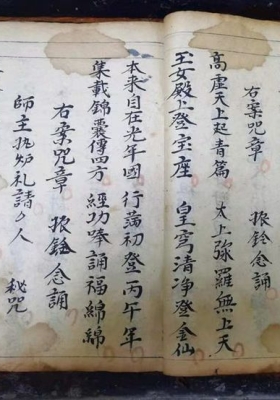 右案咒章 振鈴念誦
高虚天上起青篇 太上弥羅無上天
玉女殿上登宝座 皇穹清净登金仙
本来自在光年國 行滿初登丙午年
集載錦囊傳四方 經功奉誦福綿綿
右案咒章 振鈴念誦
師主执炉礼請 人 秘咒